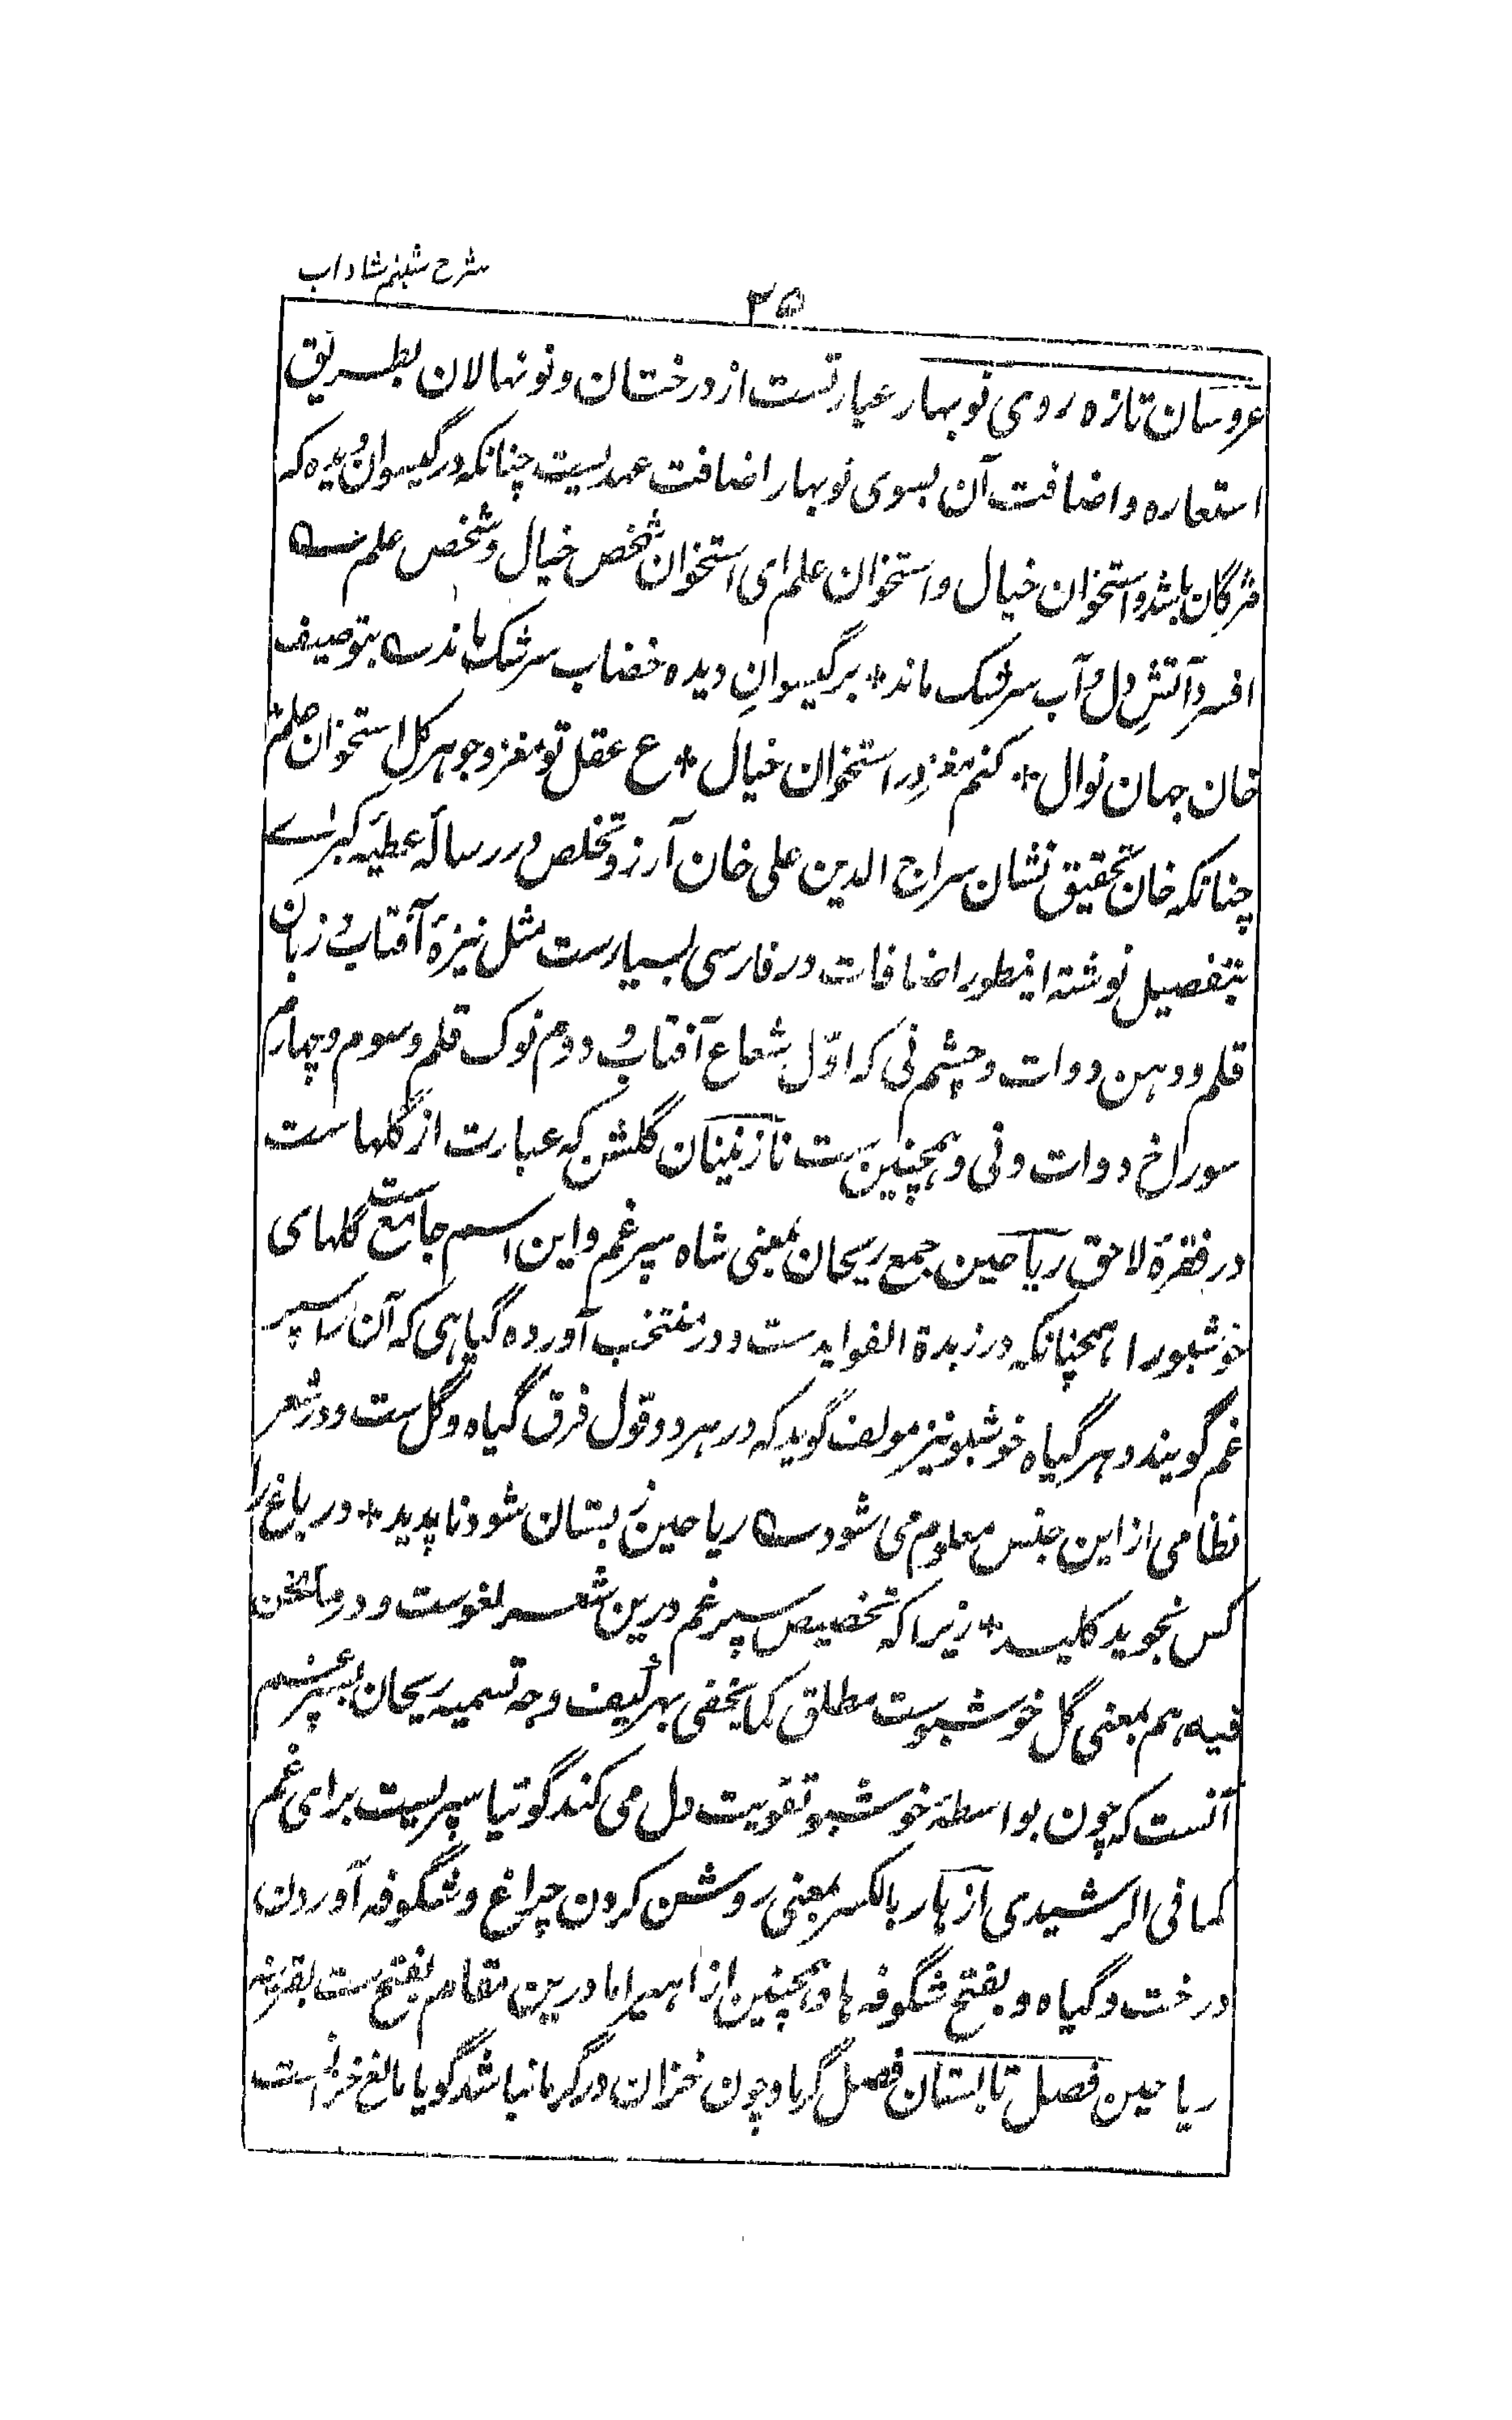 شرح شبنم شاداب
۲۵
عروسان تازه روی نوبهار عبارتست از درختان و نونهالان بطریق
استعاره و اضافت آن بسوی نوبهار اضافت عهدیست چنانکه در گیسوان دیده که
مژگان باشد و استخوان خیال و استخوان علم ای استخوان شخص خیال و شخص علم
افسر و آتشِ دل و آب سرشک ماند * بر گیسوانِ دیده خضاب سرشک ماند بتوصیف
خان جهان نوال * کنم مغز در استخوان خیال * ع عقل تو مغز و جوهر کل استخوان علم *
چنانکه خان تحقیق نشان سراج الدین علی خان آرزو تخلص در رسالهٔ عطیهٔ کبرای
بتفصیل نوشته اینطور اضافات در فارسی بسیارست مثل نیزهٔ آفتاب و زبان
قلم و دهن دوات و چشم نی که اوّل شعاع آفتاب و دوم نوک قلم و سوم و چهارم
سوراخ دوات و نی و همچنین ست نازنینان گلشن که عبارت از گلهاست
در فقرهٔ لاحق ریاحین جمع ریحان بمعنی شاه سپرغم و این اسم جامع ست گلهای
خوشبو را همچنانکه در زبدة الفوایدست و در منتخب آورده گیاهی که آن را سپر
غم گویند و هر گیاه خوشبو نیز مولف گوید که در هر دو قول فرق گیاه و گل ست و در شعر
نظامی از این جنس معلوم می شود ریاحین ز بستان شود ناپدید * در باغ را
کس نجوید کلید * زیرا که تخصیص سپرغم درین شعر لغوست و در ما نحن
فیه هم بمعنی گل خوشبوست مطلق کما یخفی بهر کیف وجه تسمیه ریحان بسپرغم
آنست که چون بواسطهٔ خوشبو تقویت دل می کند گوئیا سپریست برای غم
کما فی الرشیدی ازهار بالکسر بمعنی روشن کردن چراغ و شگوفه آوردن
درخت و گیاه و بفتح شگوفه ها و همچنین ازاهیر اما درین مقام بفتح ست بقرینه
ریاحین فصل تابستان فصل گرما و چون خزان در گرما نباشد گویا مانع خزانست